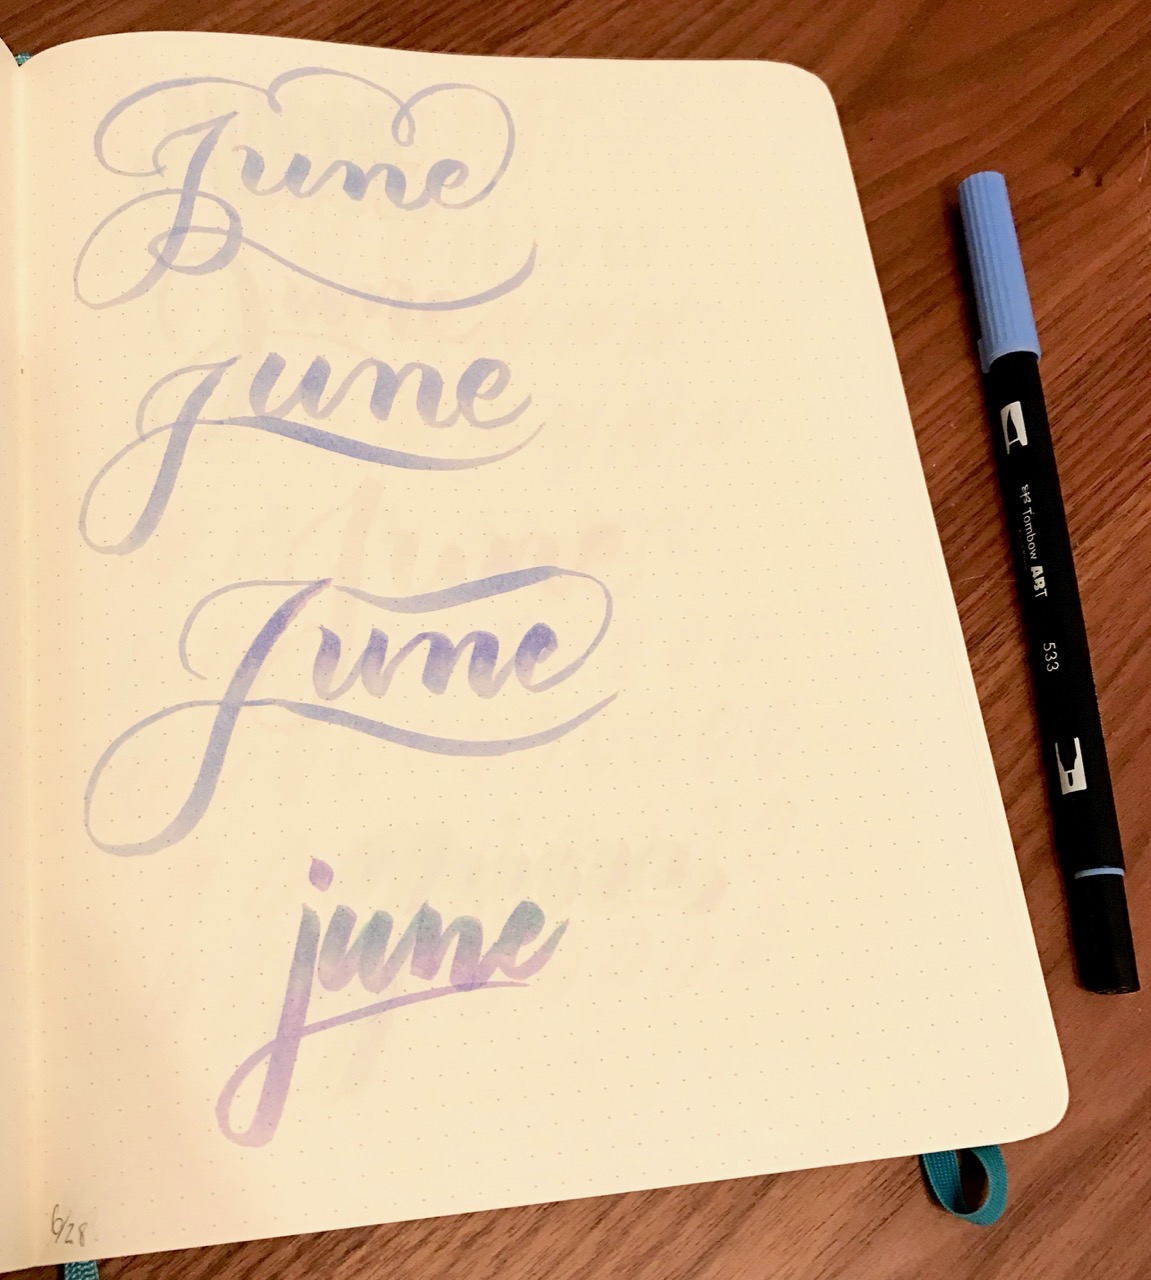 June
June
June
june
6/28
Tombow ABT
533